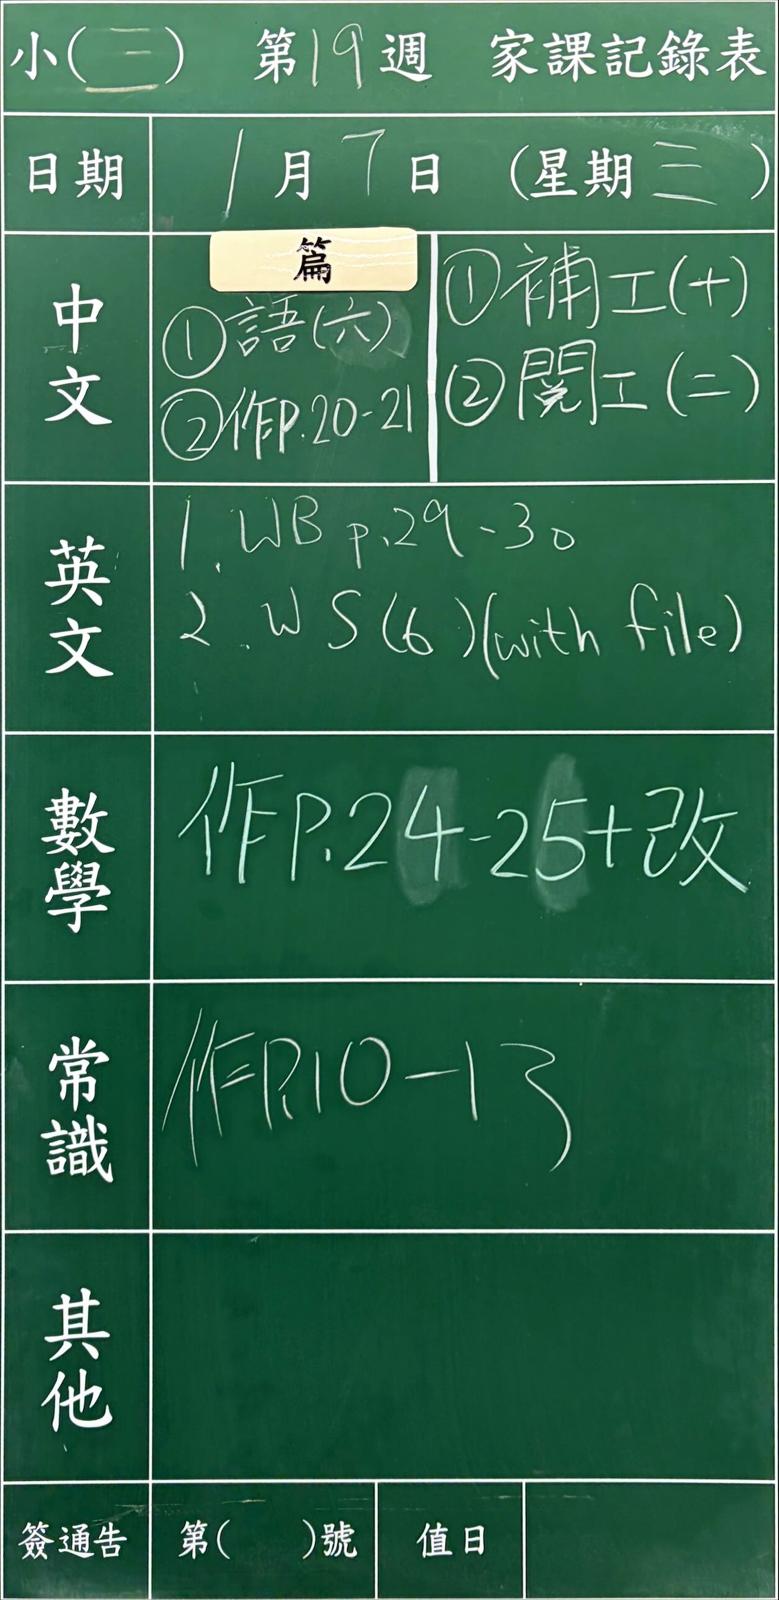 小(二) 第19週 家課記錄表
日期 1月7日 (星期三)
中文
篇
①語(六)
②作P.20-21
①補工(十)
②閱工(二)
英文
1. WB p.29-30
2. WS(6)(with file)
數學
作P.24-25+改
常識
作P.10-13
其他
簽通告 第( )號 值日